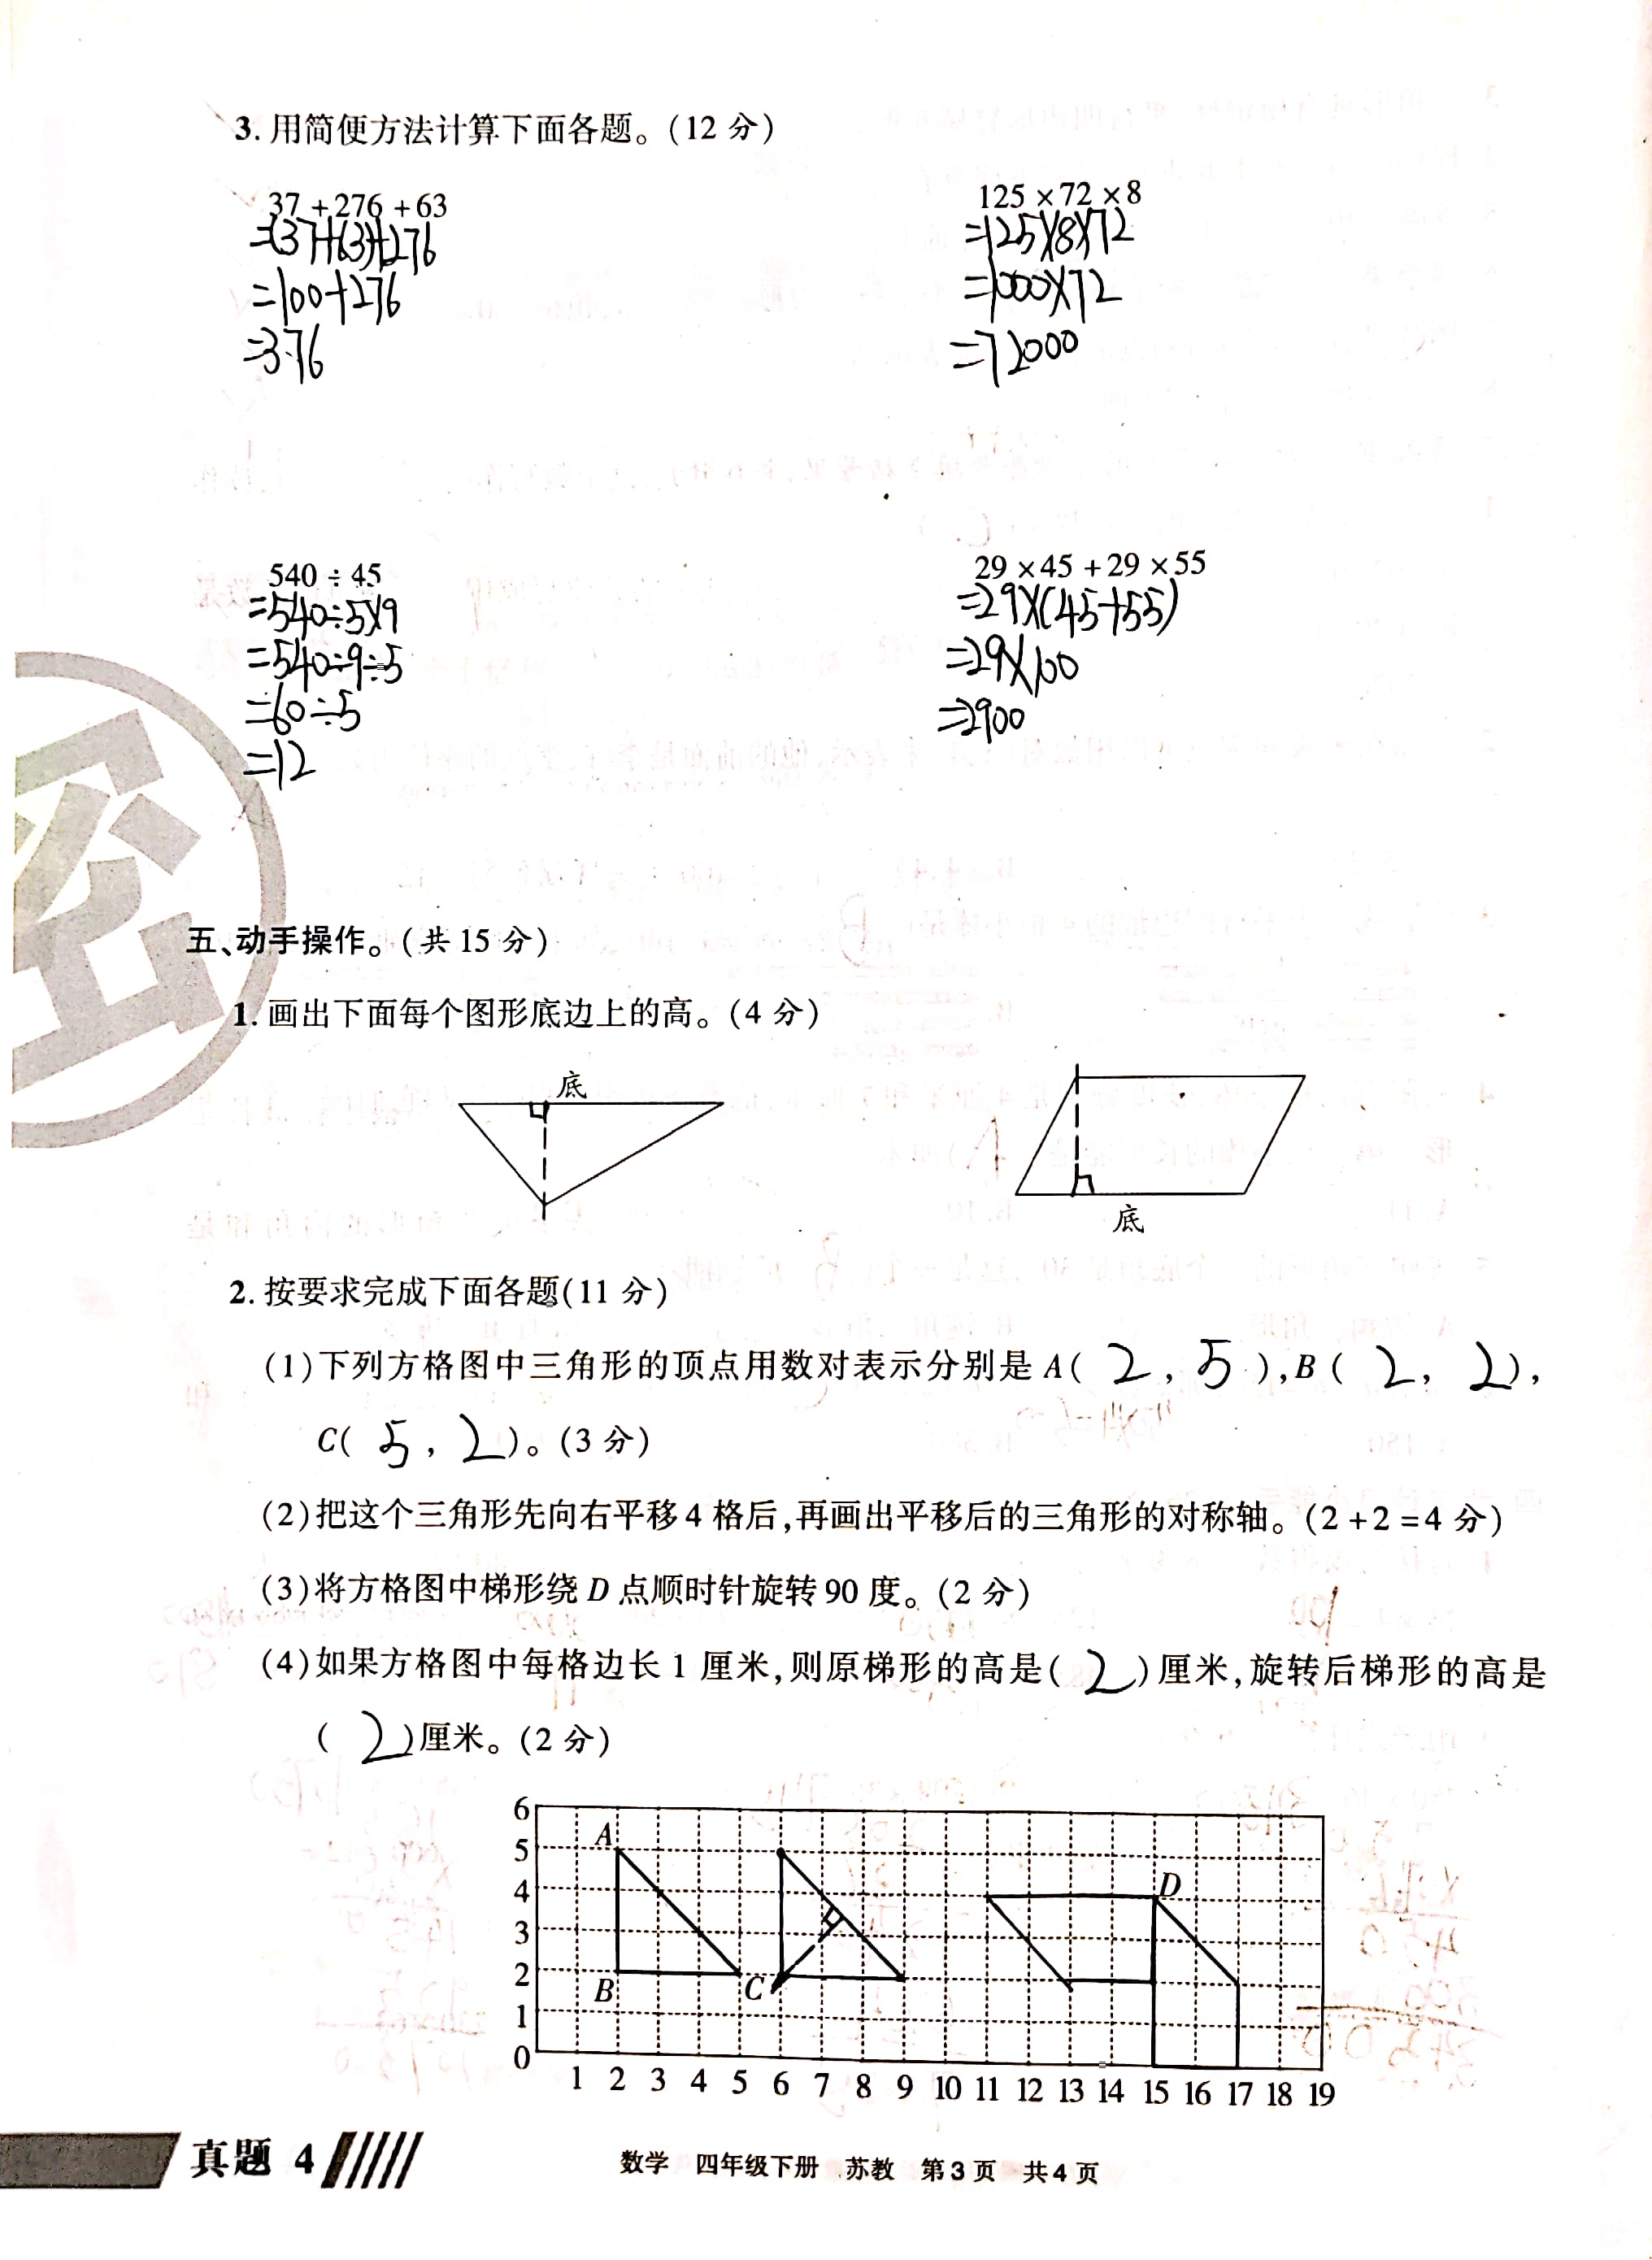 3. 用简便方法计算下面各题。(12 分)
37 + 276 + 63
=(37+63)+276
=100+276
=376
125 × 72 × 8
=125×8×72
=1000×72
=72000
540 ÷ 45
=540÷5×9
=540÷9÷5
=60÷5
=12
29 × 45 + 29 × 55
=29×(45+55)
=29×100
=2900
密
五、动手操作。(共 15 分)
1. 画出下面每个图形底边上的高。(4 分)
底
底
2. 按要求完成下面各题(11 分)
(1)下列方格图中三角形的顶点用数对表示分别是 A( 2 , 5 ),B( 2 , 2 ),
C( 5 , 2 )。(3 分)
(2)把这个三角形先向右平移 4 格后,再画出平移后的三角形的对称轴。(2 + 2 = 4 分)
(3)将方格图中梯形绕 D 点顺时针旋转 90 度。(2 分)
(4)如果方格图中每格边长 1 厘米,则原梯形的高是( 2 )厘米,旋转后梯形的高是
( 2 )厘米。(2 分)
6
5 A
4 D
3
2 B C
1
0
1 2 3 4 5 6 7 8 9 10 11 12 13 14 15 16 17 18 19
真题 4
数学 四年级下册 苏教 第 3 页 共 4 页